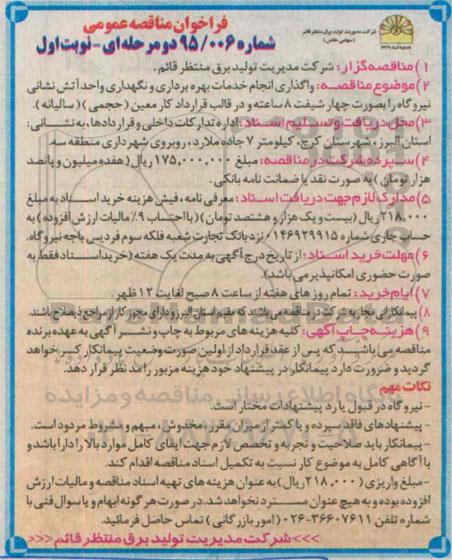 شرکت مدیریت تولید برق منتظر قائم
(سهامی خاص)
فراخوان مناقصه عمومی
شماره ۹۵/۰۰۶ دو مرحله‌ای - نوبت اول
۱) مناقصه‌گزار: شرکت مدیریت تولید برق منتظر قائم.
۲) موضوع مناقصه: واگذاری انجام خدمات بهره برداری و نگهداری واحد آتش نشانی
نیروگاه را بصورت چهار شیفت ۸ ساعته و در قالب قرارداد کار معین (حجمی) (سالیانه).
۳) محل دریافت و تسلیم اسناد: اداره تدارکات داخلی و قراردادها، به نشانی:
استان البرز، شهرستان کرج، کیلومتر ۷ جاده ملارد، روبروی شهرداری منطقه سه.
۴) سپرده شرکت در مناقصه: مبلغ ۱۷۵,۰۰۰,۰۰۰ ریال (هفده میلیون و پانصد
هزار تومان) به صورت نقد یا ضمانت نامه بانکی.
۵) مدارک لازم جهت دریافت اسناد: معرفی نامه، فیش هزینه خرید اسناد به مبلغ
۲۱۸,۰۰۰ ریال (بیست و یک هزار و هشتصد تومان) (با احتساب ۹٪ مالیات ارزش افزوده) به
حساب جاری شماره ۰۱۴۶۹۲۹۹۱۵ نزد بانک تجارت شعبه فلکه سوم فردیس باجه نیروگاه.
۶) مهلت خرید اسناد: از تاریخ درج آگهی به مدت یک هفته (خرید اسناد فقط به
صورت حضوری امکانپذیر می باشد).
۷) ایام خرید: تمام روز های هفته از ساعت ۸ صبح لغایت ۱۲ ظهر.
۸) پیمانکارانی مجاز به شرکت در مناقصه می باشند که مقیم استان البرز و دارای مجوز کار از مراجع ذیصلاح باشند.
۹) هزینه چاپ آگهی: کلیه هزینه های مربوط به چاپ و نشر آگهی به عهده برنده
مناقصه می باشد که پس از عقد قرارداد از اولین صورت وضعیت پیمانکار کسر خواهد
گردید و ضرورت دارد پیمانکار در پیشنهاد خود هزینه مزبور را مد نظر قرار دهد.
نکات مهم
- نیروگاه در قبول یا رد پیشنهادات مختار است.
- پیشنهادهای فاقد سپرده و یا کمتر از میزان مقرر، مخدوش، مبهم و مشروط مردود است.
- پیمانکار باید صلاحیت و تجربه و تخصص لازم جهت ایفای کامل موارد بالا را دارا باشد و
با آگاهی کامل به موضوع کار نسبت به تکمیل اسناد مناقصه اقدام کند.
- مبلغ واریزی (۲۱۸,۰۰۰ ریال) به عنوان هزینه های تهیه اسناد مناقصه و مالیات ارزش
افزوده بوده و به هیچ عنوان مسترد نخواهد شد. در صورت هر گونه ابهام و یا سوال فنی با
شماره تلفن ۳۶۶۰۷۶۱۱-۰۲۶ (امور بازرگانی) تماس حاصل فرمائید.
>>>شرکت مدیریت تولید برق منتظر قائم<<<